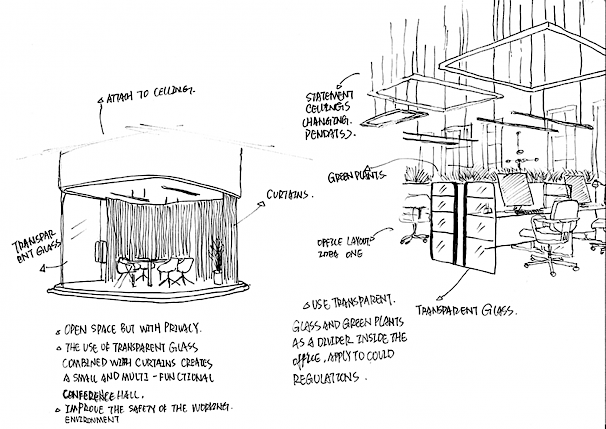 ATTACH TO CELLING.
TRANSPAR
ENT GLASS
CURTAINS.
OPEN SPACE BUT WITH PRIVACY.
THE USE OF TRANSPARENT GLASS
COMBINED WITH CURTAINS CREATES
A SMALL AND MULTI-FUNCTIONAL
CONFERENCE HALL.
IMPROVE THE SAFETY OF THE WORKING.
ENVIRONMENT
STATEMENT
CELLINGS
CHANGING.
PENDATS).
GREEN PLANTS.
OFFICE LAYOUT
ONE
TRANSPARENT GLASS.
USE TRANSPARENT.
GLASS AND GREEN PLANTS
AS A DIVIDER INSIDE THE
OFFICE, APPLY TO COULD
REGULATIONS.